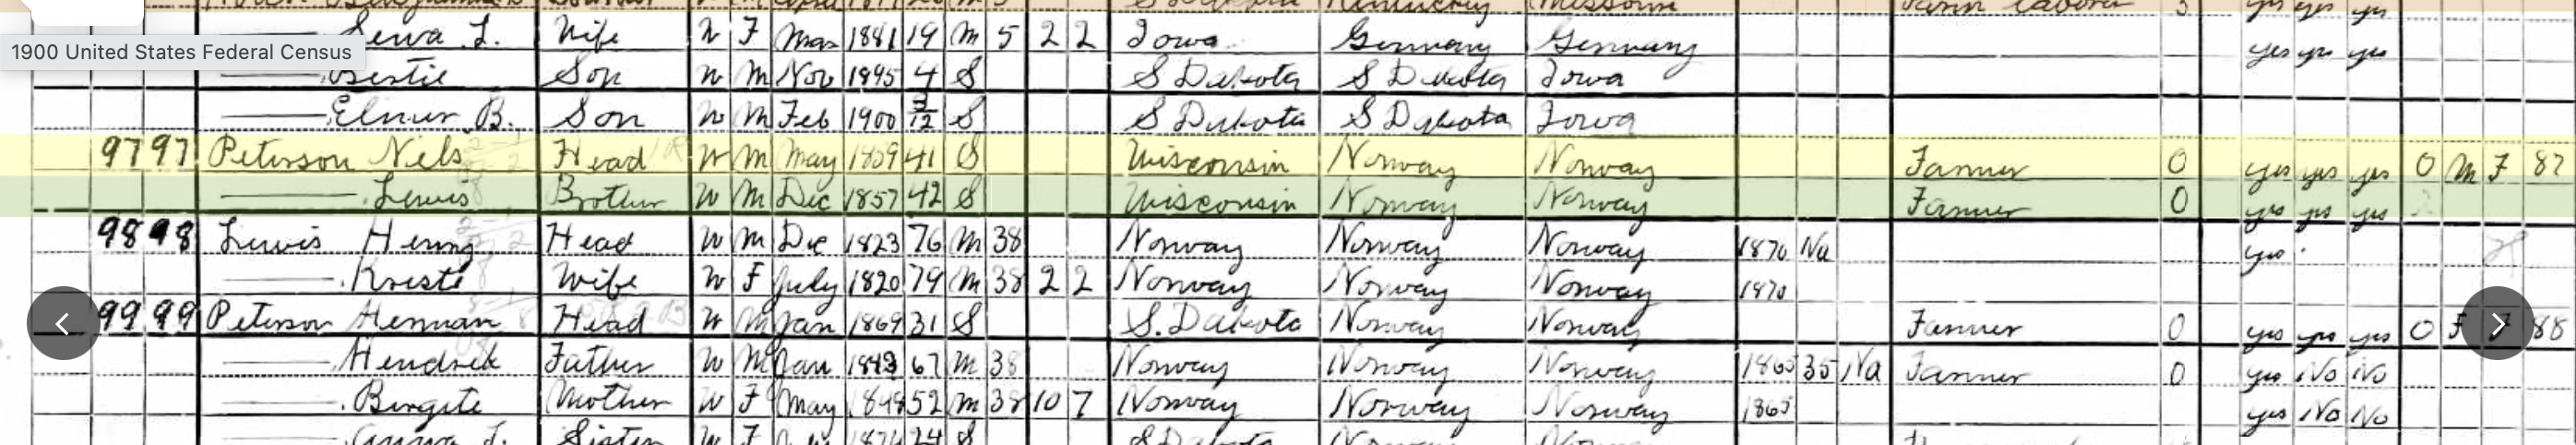 Kentucky Missouri Farm Labor 3 yes yes yes
1900 United States Federal Census
Wife W F Mar 1881 19 M 5 2 2 Iowa Germany Germany yes yes yes
Son W M Nov 1895 4 S S Dakota S Dakota Iowa
Elmer B. Son W M Feb 1900 3/12 S S Dakota S Dakota Iowa
97 97 Peterson Nels Head W M May 1859 41 S Wisconsin Norway Norway Farmer 0 yes yes yes O M F 87
Lewis Brother W M Dec 1857 42 S Wisconsin Norway Norway Farmer 0 yes yes yes
98 98 Lewis Head W M Dec 1823 76 M 38 Norway Norway Norway 1870 Na yes
Wife W F July 1820 79 M 38 2 2 Norway Norway Norway 1870
99 99 Peterson Herman Head W M Jan 1869 31 S S. Dakota Norway Norway Farmer 0 yes yes yes O F F 88
Hendrick Father W M Jan 67 M 38 Norway Norway Norway 1865 35 Na Farmer 0 yes No No
Birgite Mother W F May 1848 52 M 38 10 7 Norway Norway Norway 1865 yes No No
Sister W F 24 S S Dakota